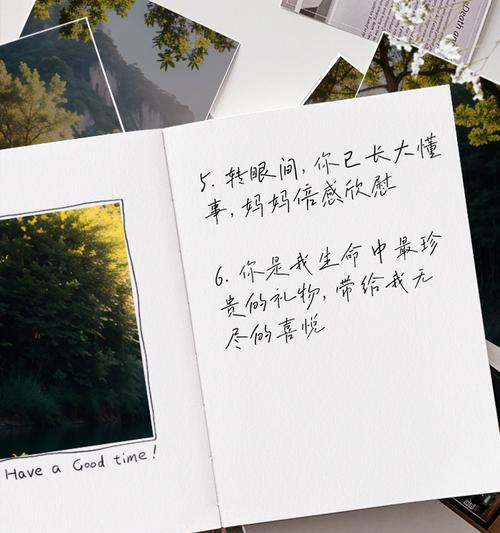 Death an
Have a Good time!
5. 转眼间，你已长大懂
事，妈妈倍感欣慰
6. 你是我生命中最珍
贵的礼物，带给我无
尽的喜悦